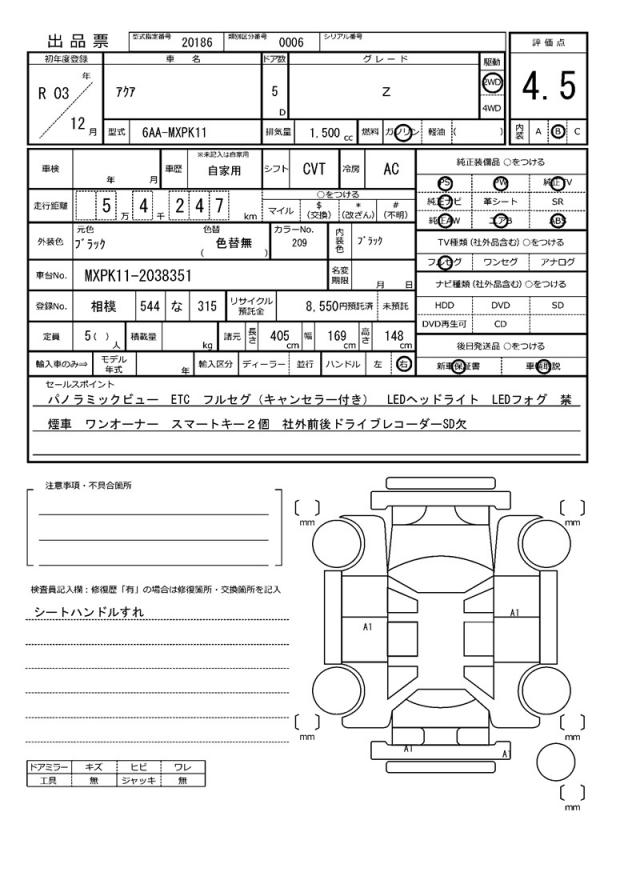 出品票 型式指定番号 20186 類別区分番号 0006 シリアル番号
評価点
4.5
内装 A B C
初年度登録 車名 ドア数 グレード 駆動
R 03 年 12 月
アクア 5 D Z 2WD 4WD
型式 6AA-MXPK11 排気量 1.500 cc 燃料 ガソリン 軽油 ( )
車検 年 月 車歴 ※未記入は自家用 自家用 シフト CVT 冷房 AC
走行距離 5 万 4 千 2 4 7 km
○をつける
マイル $ (交換) * (改ざん) # (不明)
外装色 元色 ブラック 色替 色替無 ( ) カラーNo. 209 内装色 ブラック
車台No. MXPK11-2038351 名変期限 月 日
登録No. 相模 544 な 315 リサイクル預託金 8,550円預託済 未預託
定員 5( ) 人 積載量 kg 諸元 長さ 405 cm 幅 169 cm 高さ 148 cm
輸入車のみ⇒ モデル年式 年 輸入区分 ディーラー 並行 ハンドル 左 右
純正装備品 ○をつける
PS PW 純正TV
純正ナビ 革シート SR
純正AW エアB ABS
TV種類 (社外品含む) ○をつける
フルセグ ワンセグ アナログ
ナビ種類 (社外品含む) ○をつける
HDD DVD SD
DVD再生可 CD
後日発送品 ○をつける
新車保証書 車輌取説
セールスポイント
パノラミックビュー ETC フルセグ(キャンセラー付き) LEDヘッドライト LEDフォグ 禁
煙車 ワンオーナー スマートキー2個 社外前後ドライブレコーダーSD欠
注意事項・不具合箇所
検査員記入欄：修復歴「有」の場合は修復箇所・交換箇所を記入
シートハンドルすれ
ドアミラー キズ ヒビ ワレ
工具 無 ジャッキ 無
mm mm
A1 A1
mm mm
A1 A1
mm